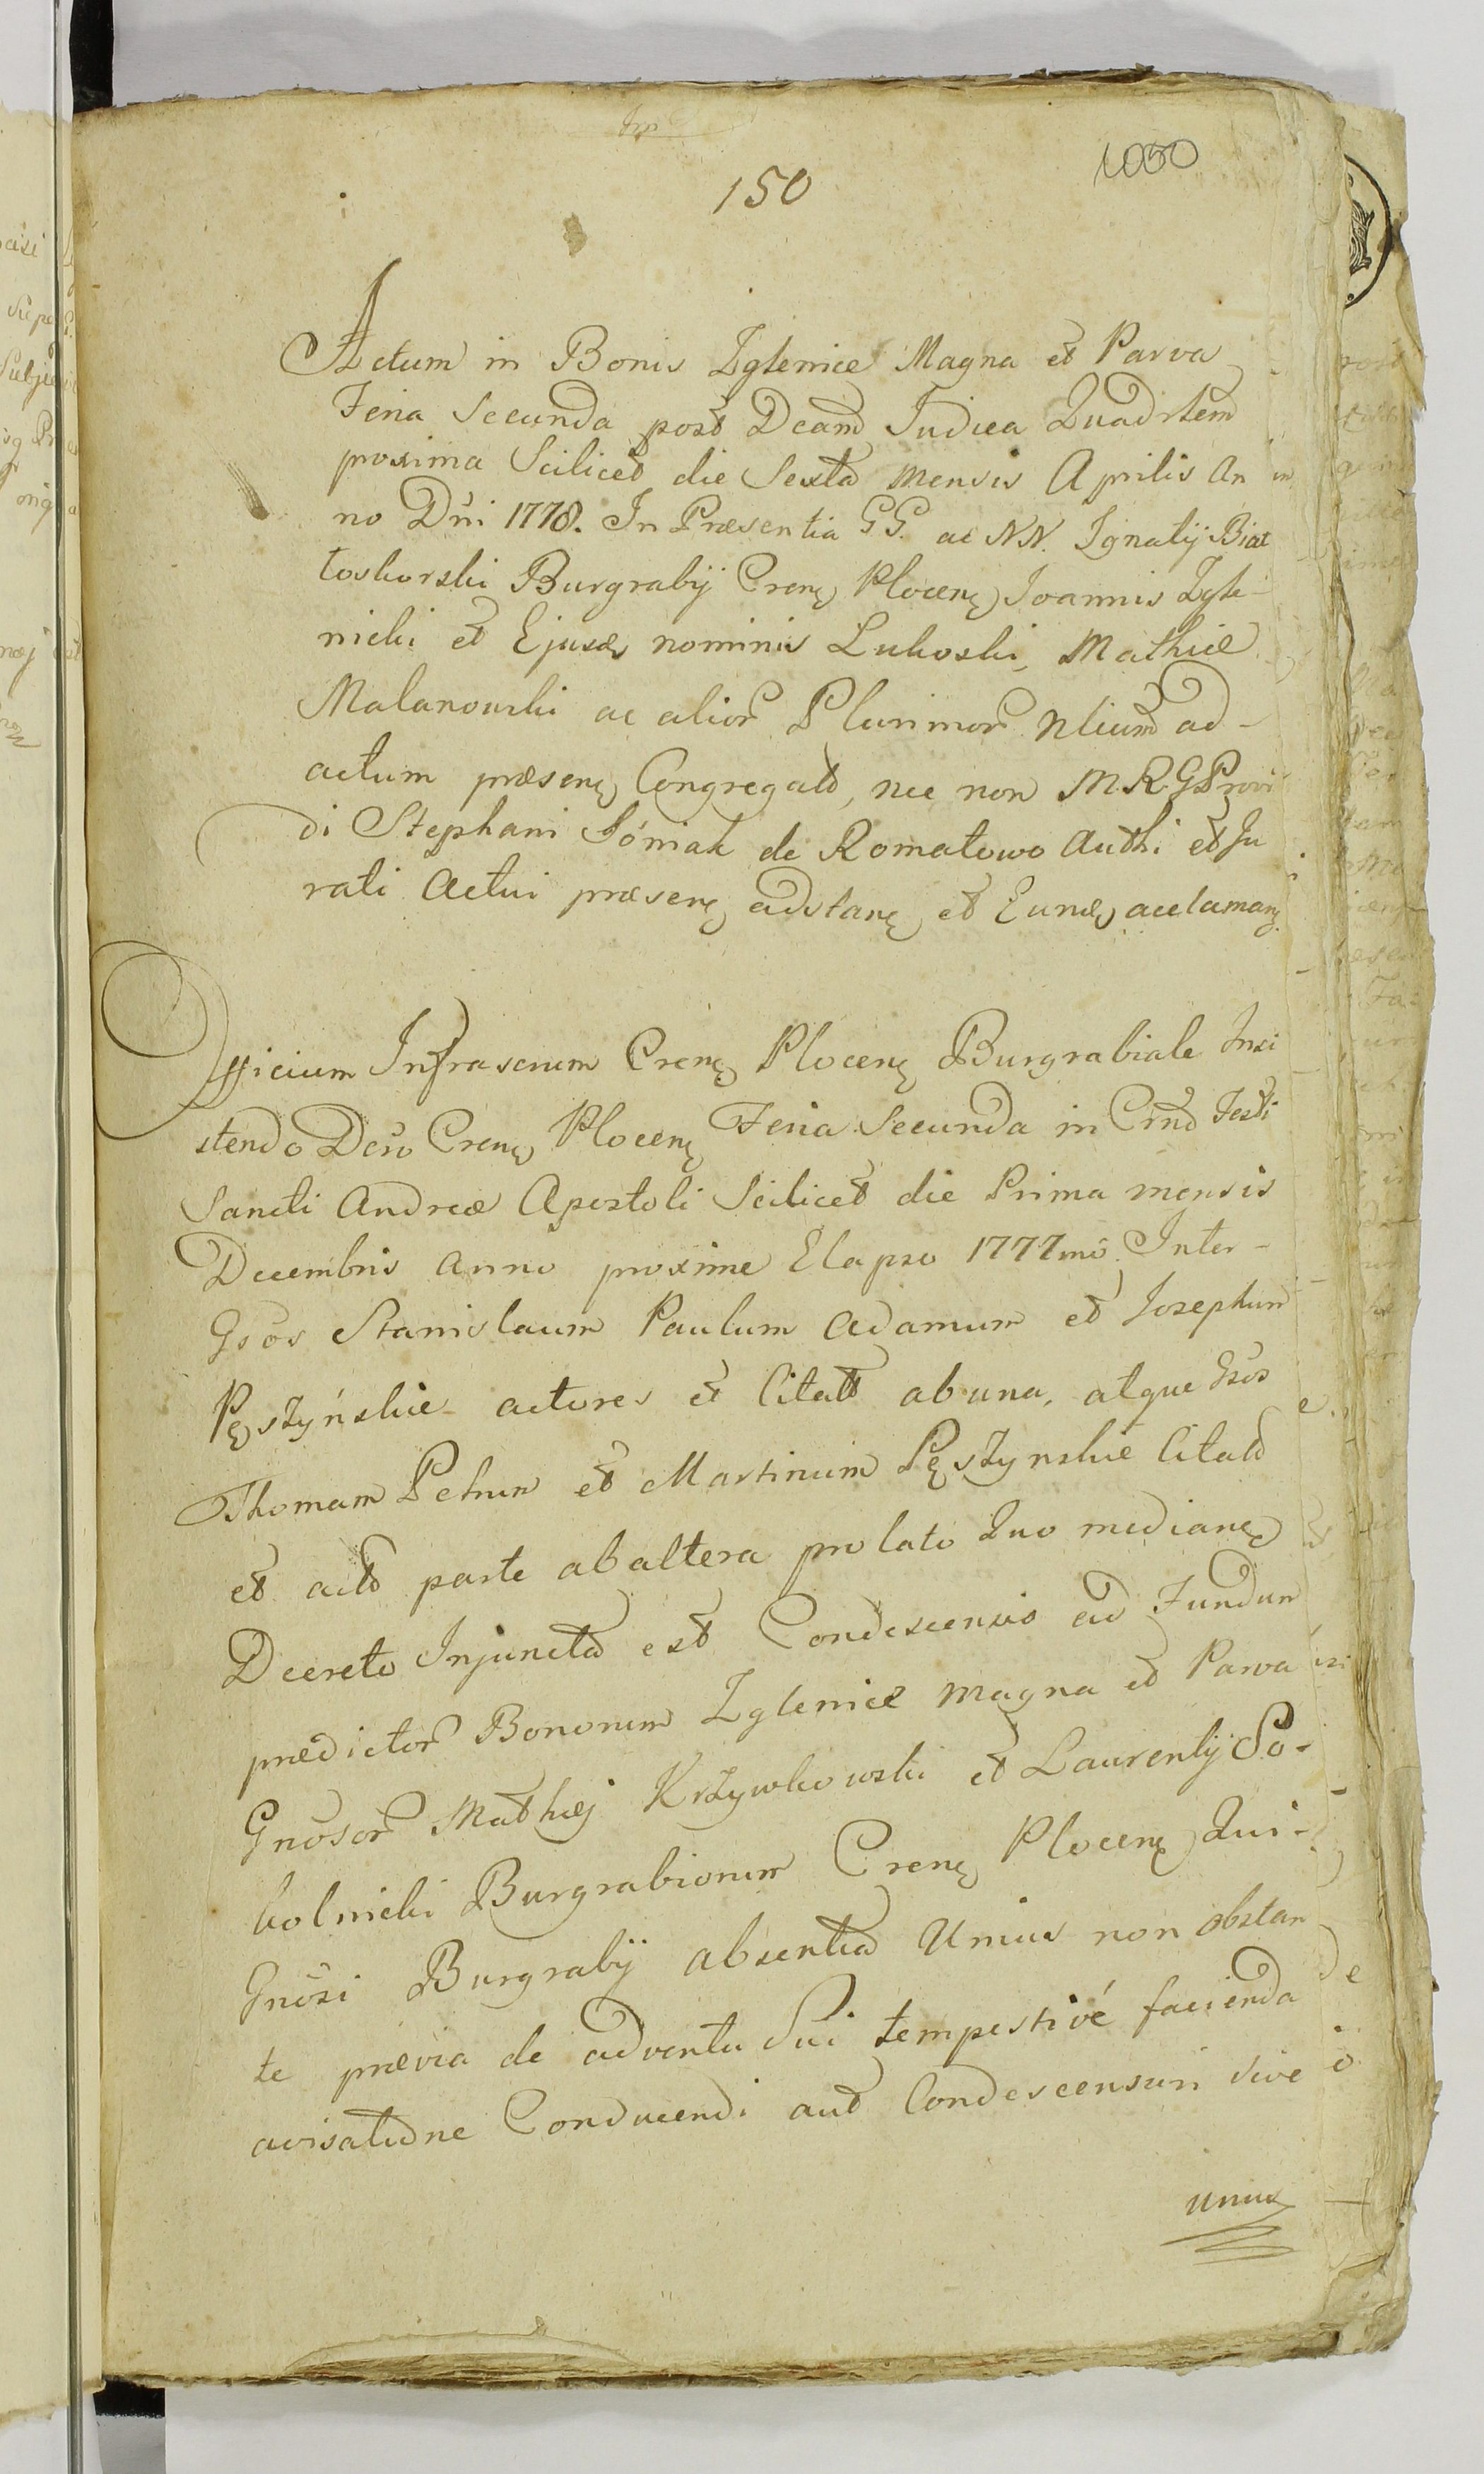 150
1050
Actum in Bonis Zglenice Magna et Parva
Feria Secunda post Dcam Judica Quadrlem
proxima Scilicet die Sexta mensis Aprilis An
no Dni 1778. In Præsentia GG. ac NN. Ignatij Biał
łoskorski Burgrabij Crens Plocens Joannis Zgle-
nicki et Ejusd nominis Lukoski, Mathiæ
Malanowski ac alior Plurimor Nlium ad-
actum præsens Congregat, nec non M.R.G. Provi
di Stephani Sóniak de Romatowo Authi et Ju
rati Actui præsens adstans et Eund acclamans
Officium Infrascrum Crens Plocens Burgrabiale Insi
stendo Dcro Crens Plocens Feria Secunda in Crno Festi
Sancti Andreæ Apostoli Scilicet die Prima mensis
Decembris anno proxime Elapso 1777mo Inter-
Gsos Stanislaum Paulum Adamum et Josephum
Pęszyńskie actores et Citatt ab una, atque Gsos
Thomam Petrum et Martinum Pęszynskie Citatt
et actt parte ab altera prolato Quo medians
Decreto Injuncta est Condescensio ad Fundum
prædictor Bonorum Zglenice magna et Parva
Gnosor Mathæj Krzywkowski et Laurentij So-
kolnicki Burgrabiorum Crens Plocens Qui-
Gnosi Burgrabij absentia Unius non obstan
te prævia de adventu Sui tempestivé facienda
avisatione Conducendi aut Condescensuri sive
unus